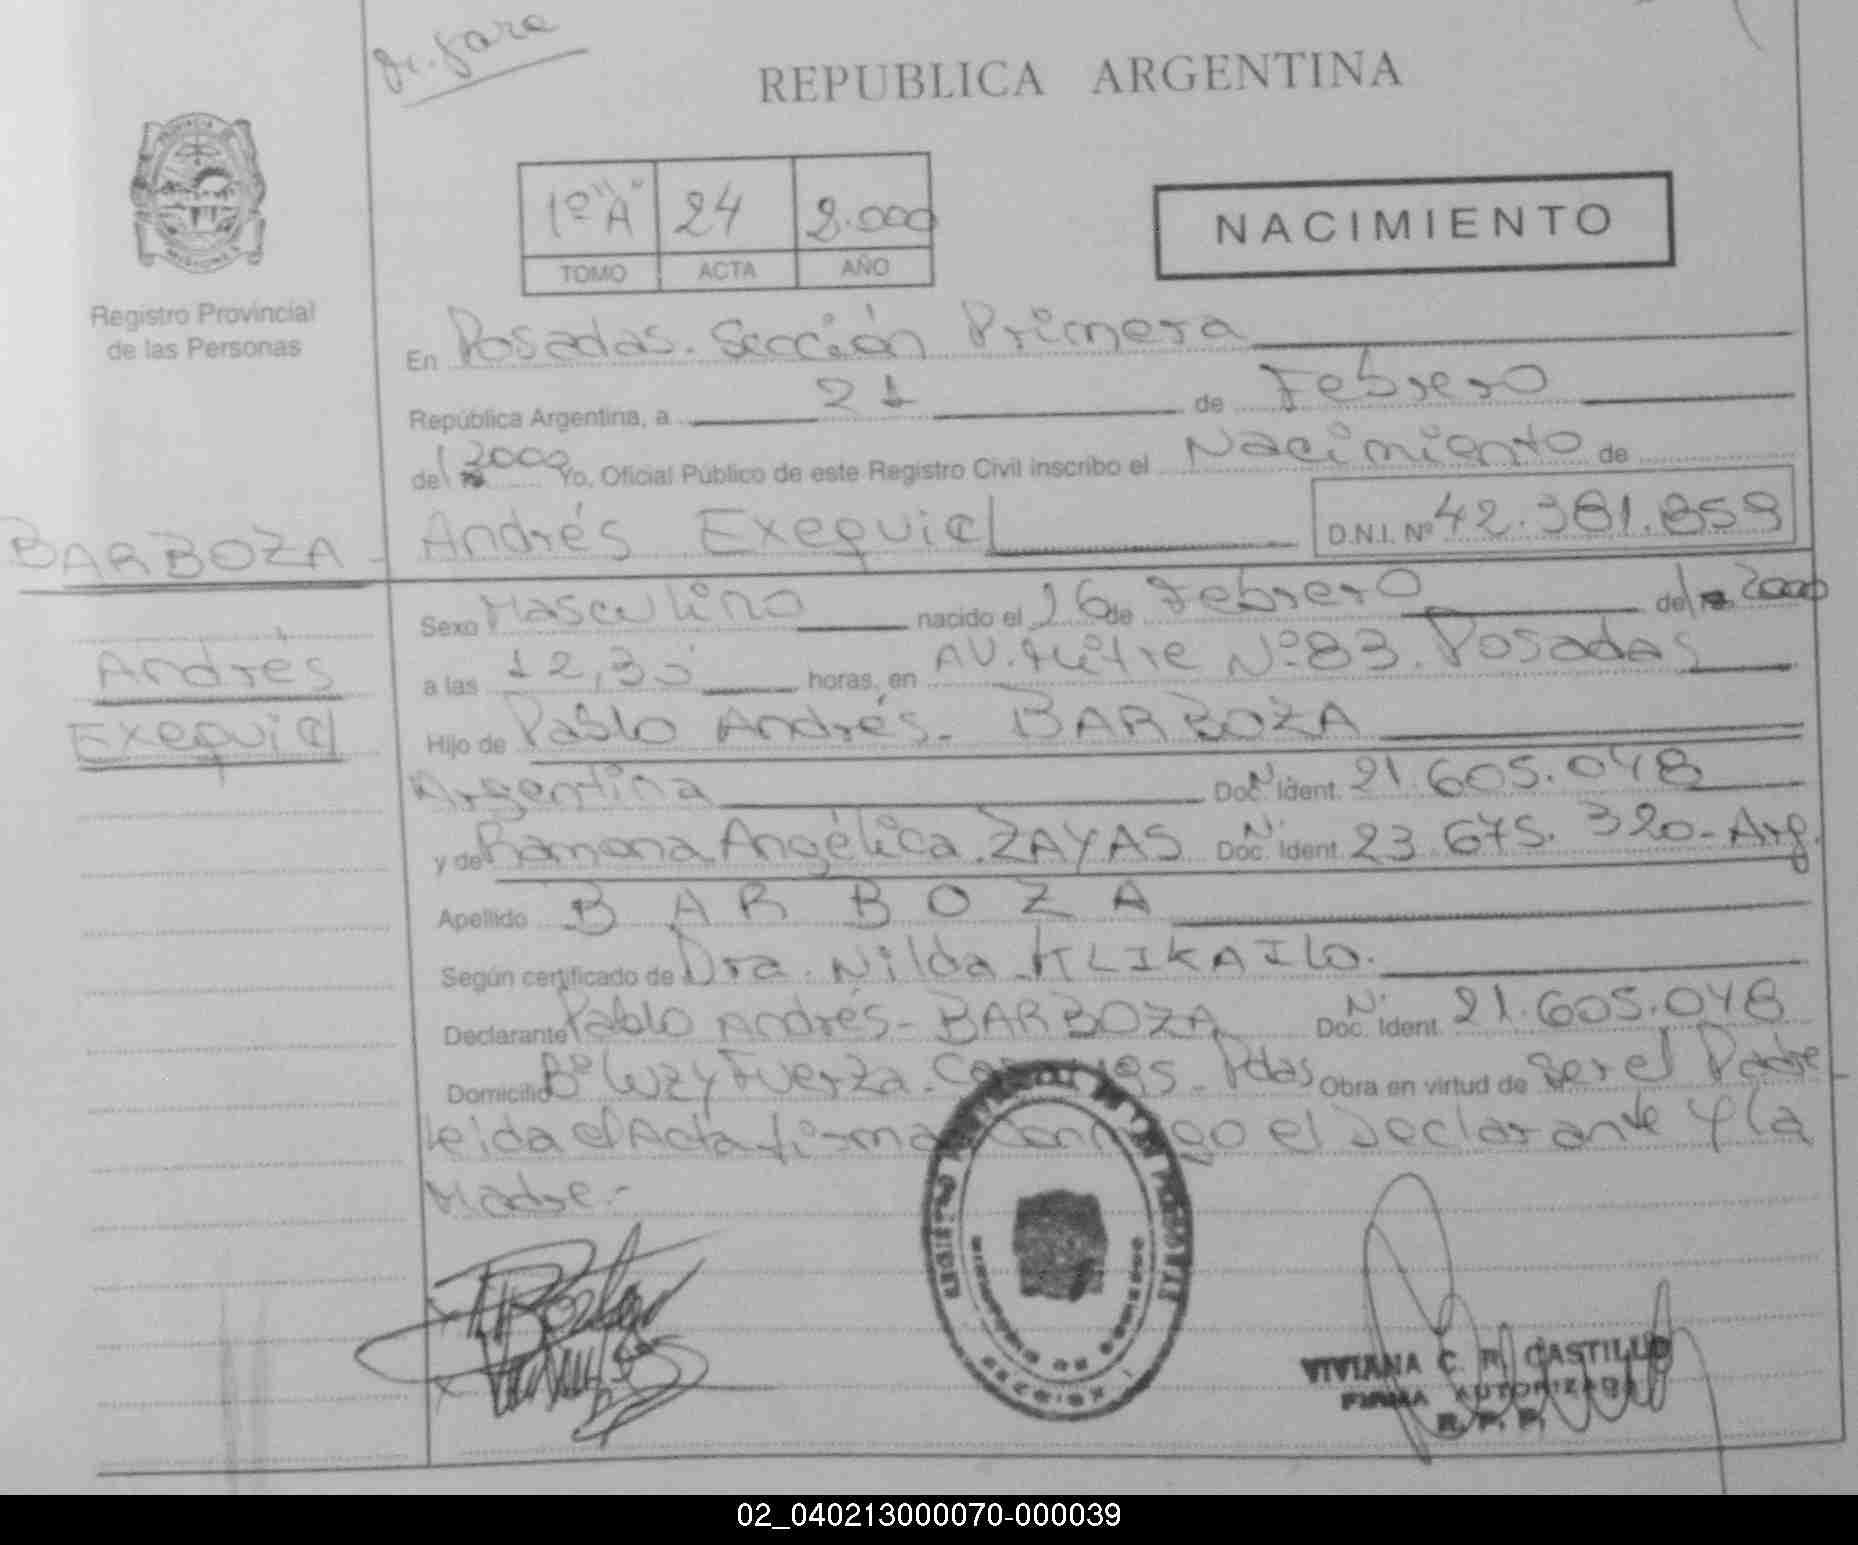 REPUBLICA ARGENTINA
1º "A" 24 2.000
TOMO ACTA AÑO
NACIMIENTO
Registro Provincial
de las Personas
En Posadas. Sección Primera
República Argentina, a 21 de Febrero
del 2000 Yo, Oficial Público de este Registro Civil inscribo el Nacimiento de
Andrés Exequiel D.N.I. Nº 42.381.859
BARBOZA -
Andrés
Exequiel
Sexo Masculino nacido el 16 de Febrero del 2000
a las 12,35 horas, en AV. Mitre Nº 83. Posadas
Hijo de Pablo Andrés - BARBOZA
Argentina Doc. N. Ident. 21.605.048
y de Ramona Angélica ZAYAS Doc. N. Ident. 23.675.320 - Arg.
Apellido BARBOZA
Según certificado de Dra. Nilda KLIKAILO.
Declarante Pablo Andrés - BARBOZA Doc. N. Ident. 21.605.048
Domicilio Bº Luz y Fuerza - Pdas Obra en virtud de ser el Padre
Leida el Acta firma el Declarante y la
Madre.-
VIVIANA C. R. CASTILLO
FIRMA AUTORIZADA
R. P. P.
02_040213000070-000039